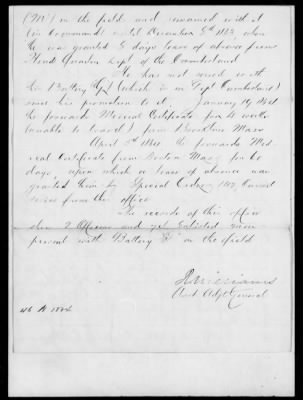 ("M") in the field and remained with it
(in command) until December 5th 1863, when
he was granted 5 days leave of absence from
Head Quarters Dept of the Cumberland
He has not served with
his Battery (which is in Dept Cumberland)
since his promotion to it. January 19 1864
he forwards Medical Certificate for 4 weeks
(unable to travel) from Brookline Mass
April 5th 1864 he forwards Med-
ical Certificate from Boston Mass for 60
days, upon which a leave of absence was
granted him by Special Orders 142, Current
series from this office
The records of this office
show 2 Officers and Enlisted men
present with Battery in the field
Williams
Asst Adjt General